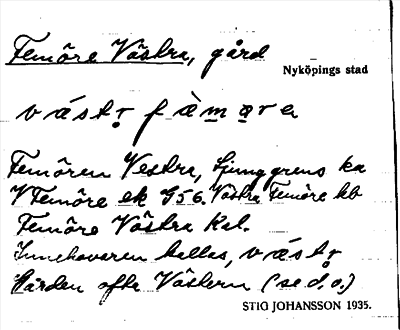 Femöre Västra, gård
Nyköpings stad
västr fàmara
Femören Vestra, Ljunggrens ka
V Femöre ek G56. Västra Femöre hb
Femöre Västra Kal.
Innehavaren kallas, västr
Gården ofta Västern (se d. o.)
STIG JOHANSSON 1935.